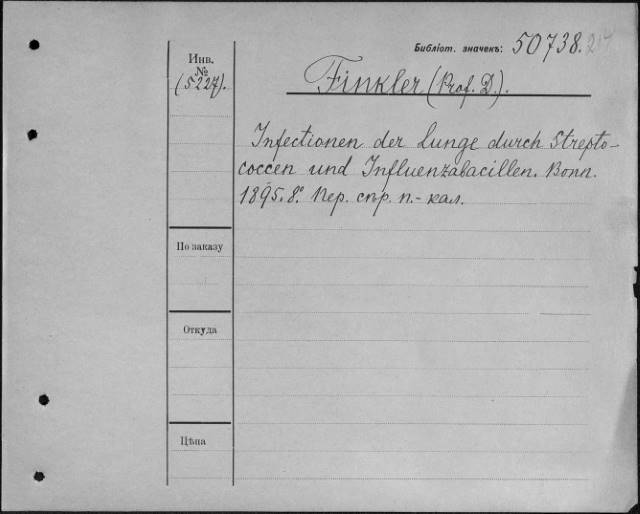 Библіот. значекъ: 50738.
Инв.
№
(5227).
Finkler (Prof. D.).
Infectionen der Lunge durch Strepto-
coccen und Influenzabacillen. Bonn.
1895. 8° Пер. сѣр. п.-кал.
По заказу
Откуда
Цѣна